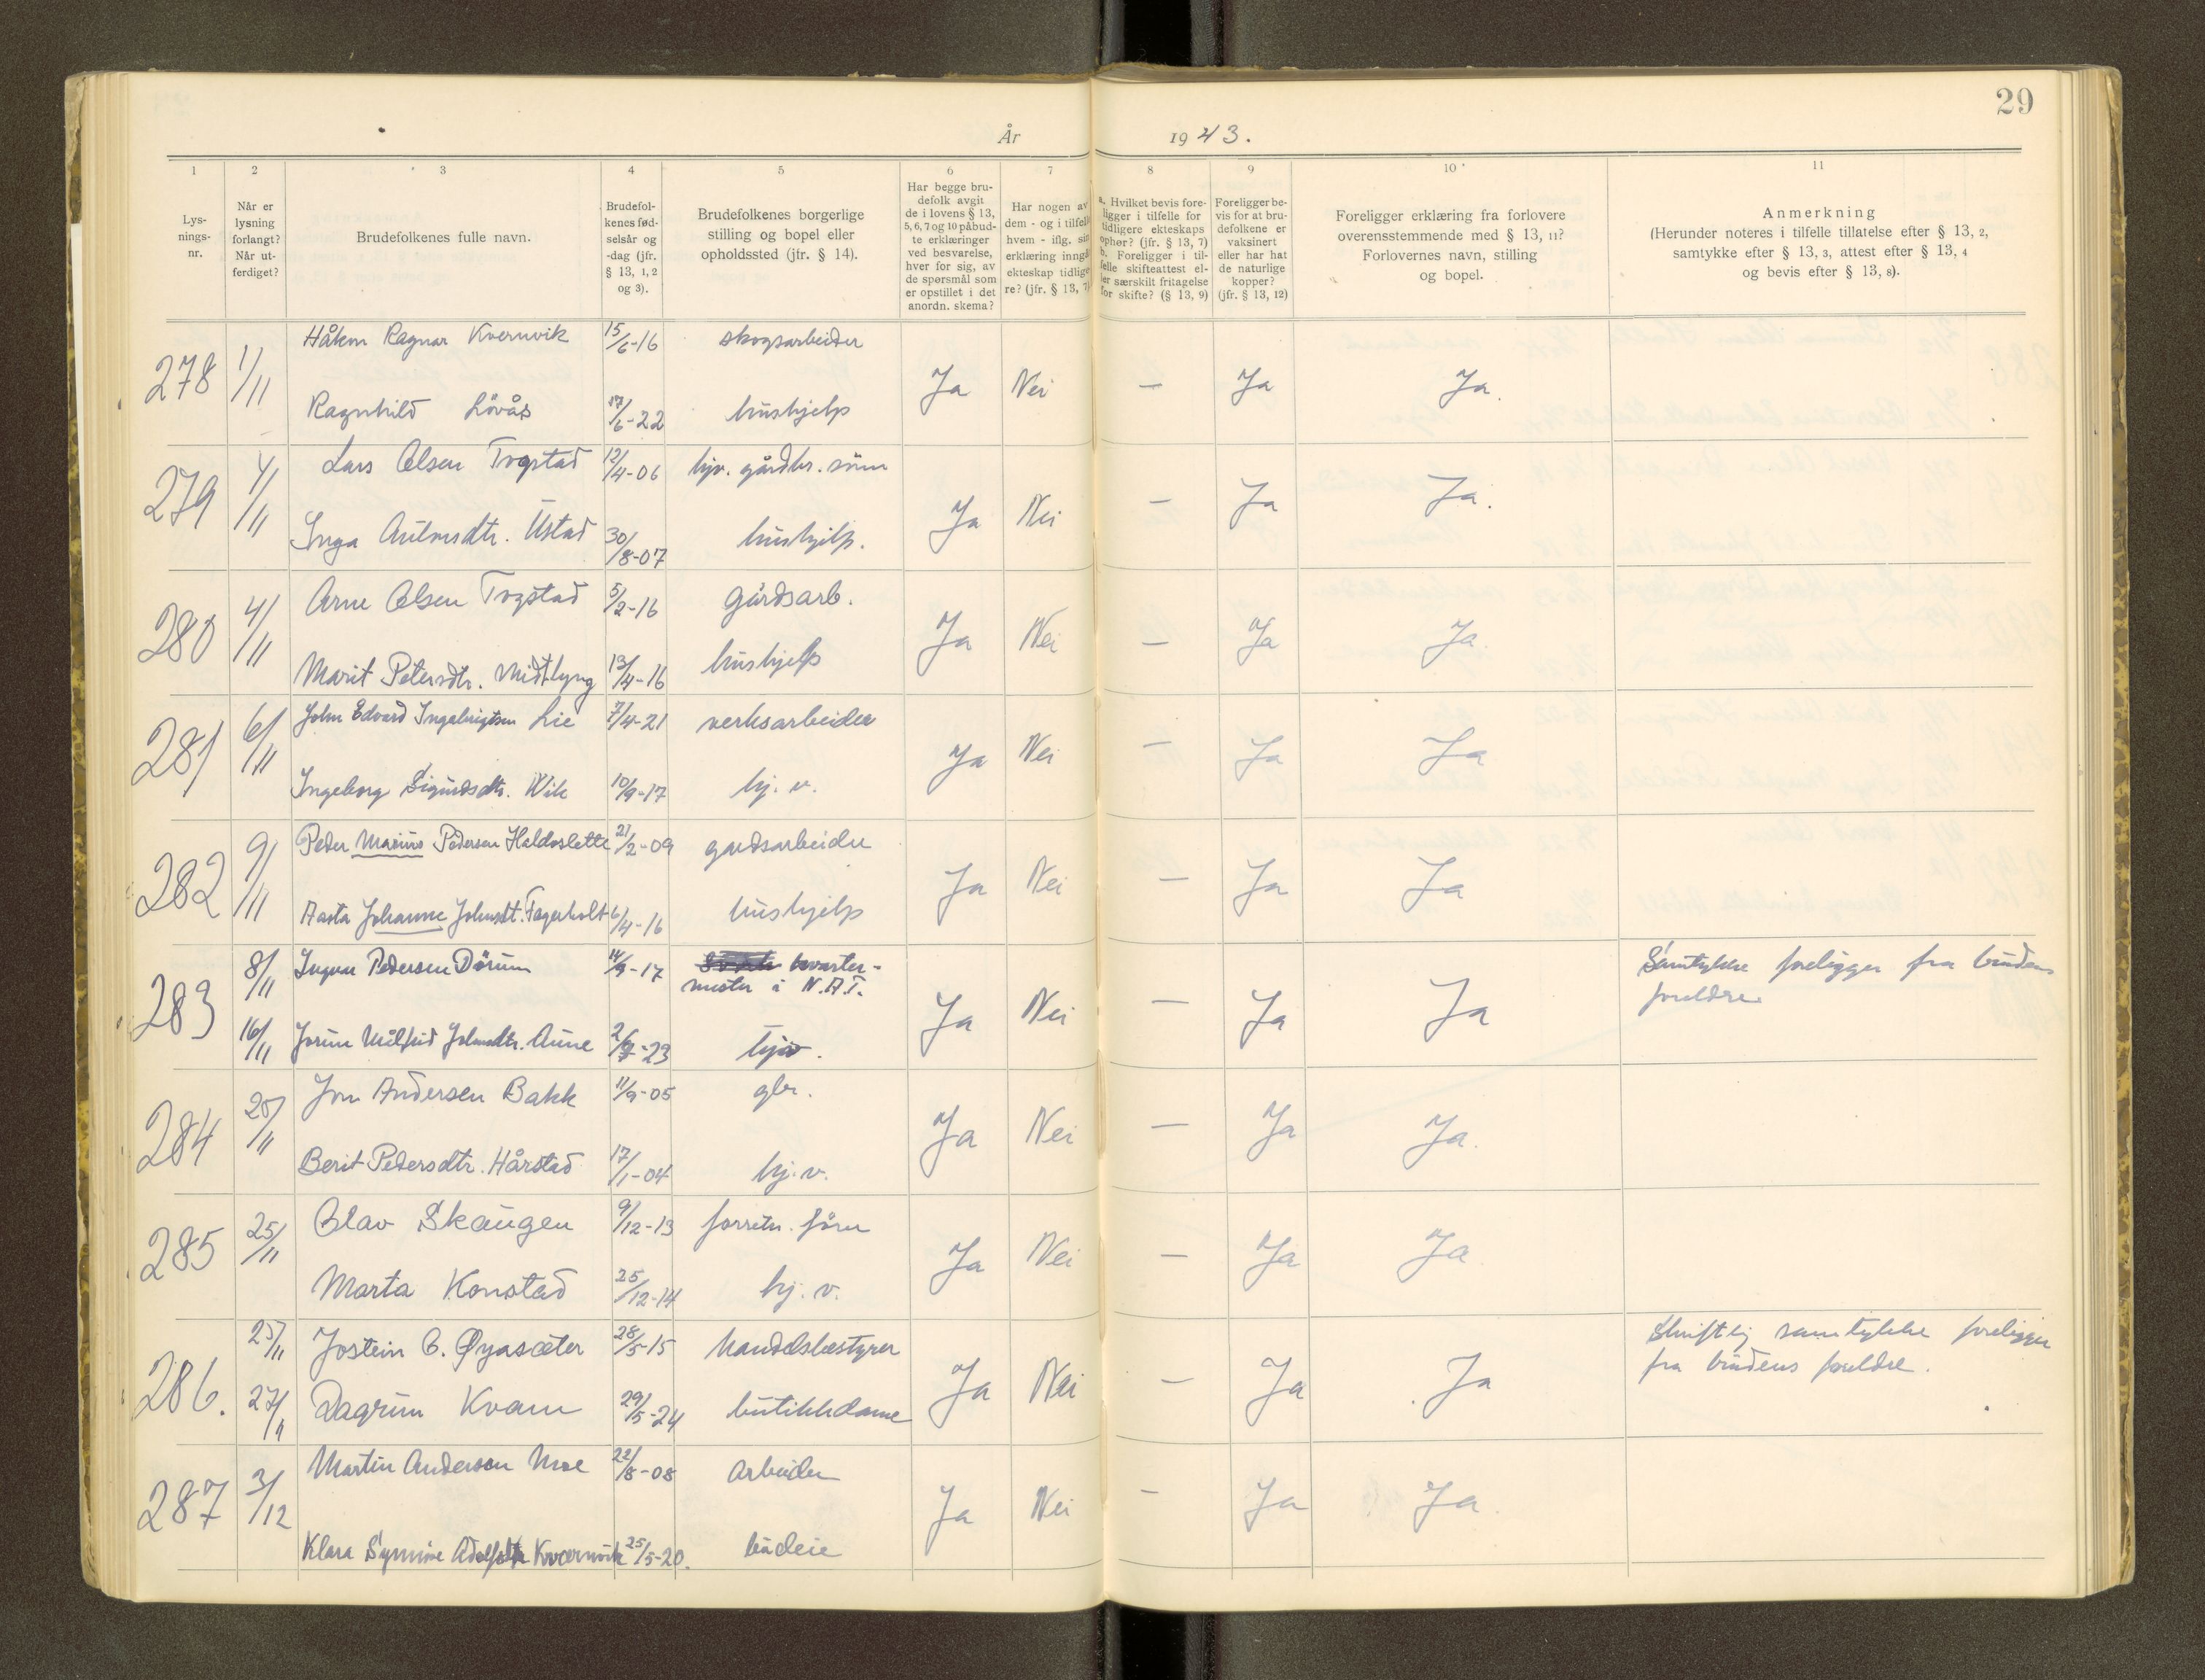 29
År 1943.
1 2 3 4 5 6 7 8 9 10 11
Lys-
nings-
nr.
Når er
lysning
forlangt?
Når ut-
ferdiget?
Brudefolkenes fulle navn.
Brudefol-
kenes fød-
selsår og
-dag (jfr.
§ 13, 1, 2
og 3).
Brudefolkenes borgerlige
stilling og bopel eller
opholdssted (jfr. § 14).
Har begge bru-
defolk avgit
de i lovens § 13,
5, 6, 7 og 10 påbud-
te erklæringer
ved besvarelse,
hver for sig, av
de spørsmål som
er opstillet i det
anordn. skema?
Har nogen av
dem - og i tilfelle
hvem - iflg. sin
erklæring inngå
ekteskap tidlige-
re? (jfr. § 13, 7)
a. Hvilket bevis fore-
ligger i tilfelle for
tidligere ekteskaps
ophør? (jfr. § 13, 7)
b. Foreligger i til-
felle skifteattest el-
ler særskilt fritagelse
for skifte? (§ 13, 9)
Foreligger be-
vis for at bru-
defolkene er
vaksinert
eller har hat
de naturlige
kopper?
(jfr. § 13, 12)
Foreligger erklæring fra forlovere
overensstemmende med § 13, 11?
Forlovernes navn, stilling
og bopel.
Anmerkning
(Herunder noteres i tilfelle tillatelse efter § 13, 2,
samtykke efter § 13, 3, attest efter § 13, 4
og bevis efter § 13, 8).
278 1/11 Håkon Ragnar Kvernvik 15/6-16 skogsarbeider Ja Nei — Ja Ja.
Ragnhild Lövås 17/6-22 hushjelp
279 4/11 Lars Olsen Trøgstad 12/4-06 hjv. gårdbr. sönn Ja Nei — Ja Ja.
Inga Ustad 30/8-07 hushjelp.
280 4/11 Arne Olsen 5/2-16 gårdsarb. Ja Nei — Ja Ja.
Marit Petersdtr. Midtlyng 13/4-16 hushjelp
281 6/11 John Edvard Ingebrigtsen Lie 7/4-21 verksarbeider Ja Nei — Ja Ja
Ingeborg Sigurdsdtr. Wik 10/9-17 hj. v.
282 9/11 Peder Marius Pedersen Haldoslette 21/2-09 gardsarbeider Ja Nei — Ja Ja
Aasta Johanne Johnsdt. Fagerholt 6/4-16 hushjelp
283 8/11 Ingvar Pedersen Dörum 14/9-17 kvarter-
mester i N.A.T. Ja Nei — Ja Ja Samtykke foreligger fra brudens
foreldre
16/11 Jorun Målfrid Johnsdtr. Aune -23 hjv.
284 20/11 Jon Andersen Bakk 11/9-05 gbr. Ja Nei — Ja Ja.
Berit Pedersdtr. Hårstad 17/1-04 hj. v.
285 25/11 Olav Skaugen 9/12-13 forretn. förer Ja Nei — Ja Ja
Marta Konstad 25/12-14 hj. v.
286. 25/11 Jostein O. Øyasæter 28/5-15 handelsbestyrer Ja Nei — Ja Ja Skriftlig samtykke foreligger
fra brudens foreldre.
27/11 Dagrun Kvam 29/5-24 butikkdame
287 3/12 Martin Andersen Moe 22/8-08 Arbeider Ja Nei — Ja Ja.
Klara Synnöve Adolfsdtr Kvernvik 25/5-20. budeie